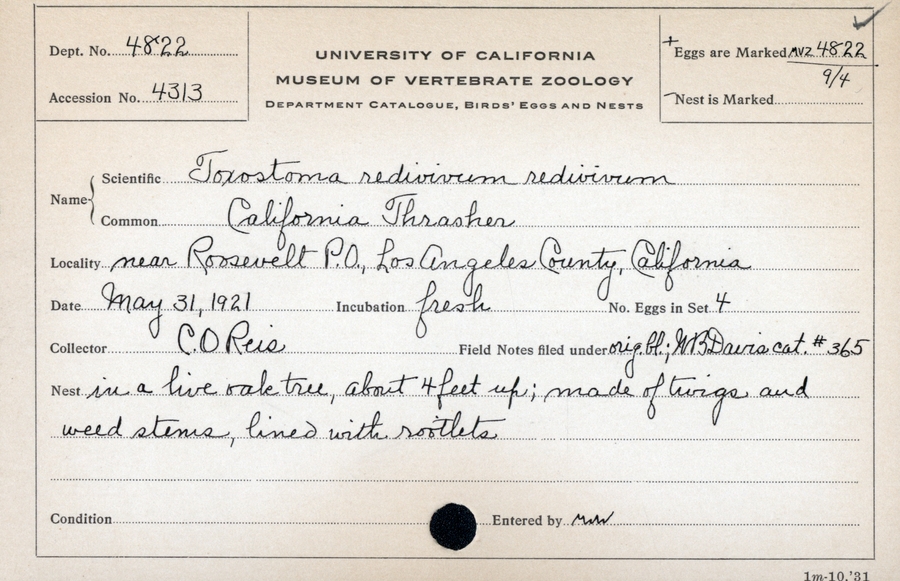 Dept. No. 4822
Accession No. 4313
UNIVERSITY OF CALIFORNIA
MUSEUM OF VERTEBRATE ZOOLOGY
DEPARTMENT CATALOGUE, BIRDS' EGGS AND NESTS
+Eggs are Marked MVZ 4822
9/4
Nest is Marked
Name
Scientific Toxostoma redivivum redivivum
Common California Thrasher
Locality near Roosevelt P.O., Los Angeles County, California
Date May 31, 1921 Incubation fresh No. Eggs in Set 4
Collector C. O Reis Field Notes filed under orig. bl.; WB Davis cat. # 365
Nest in a live oak tree, about 4 feet up; made of twigs and
weed stems, lined with rootlets
Condition Entered by
1m-10,'31